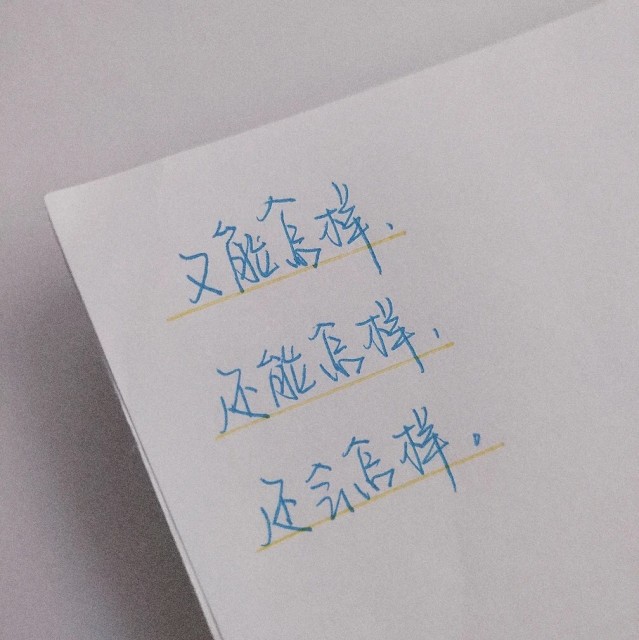 又能怎样.
还能怎样.
还会怎样.